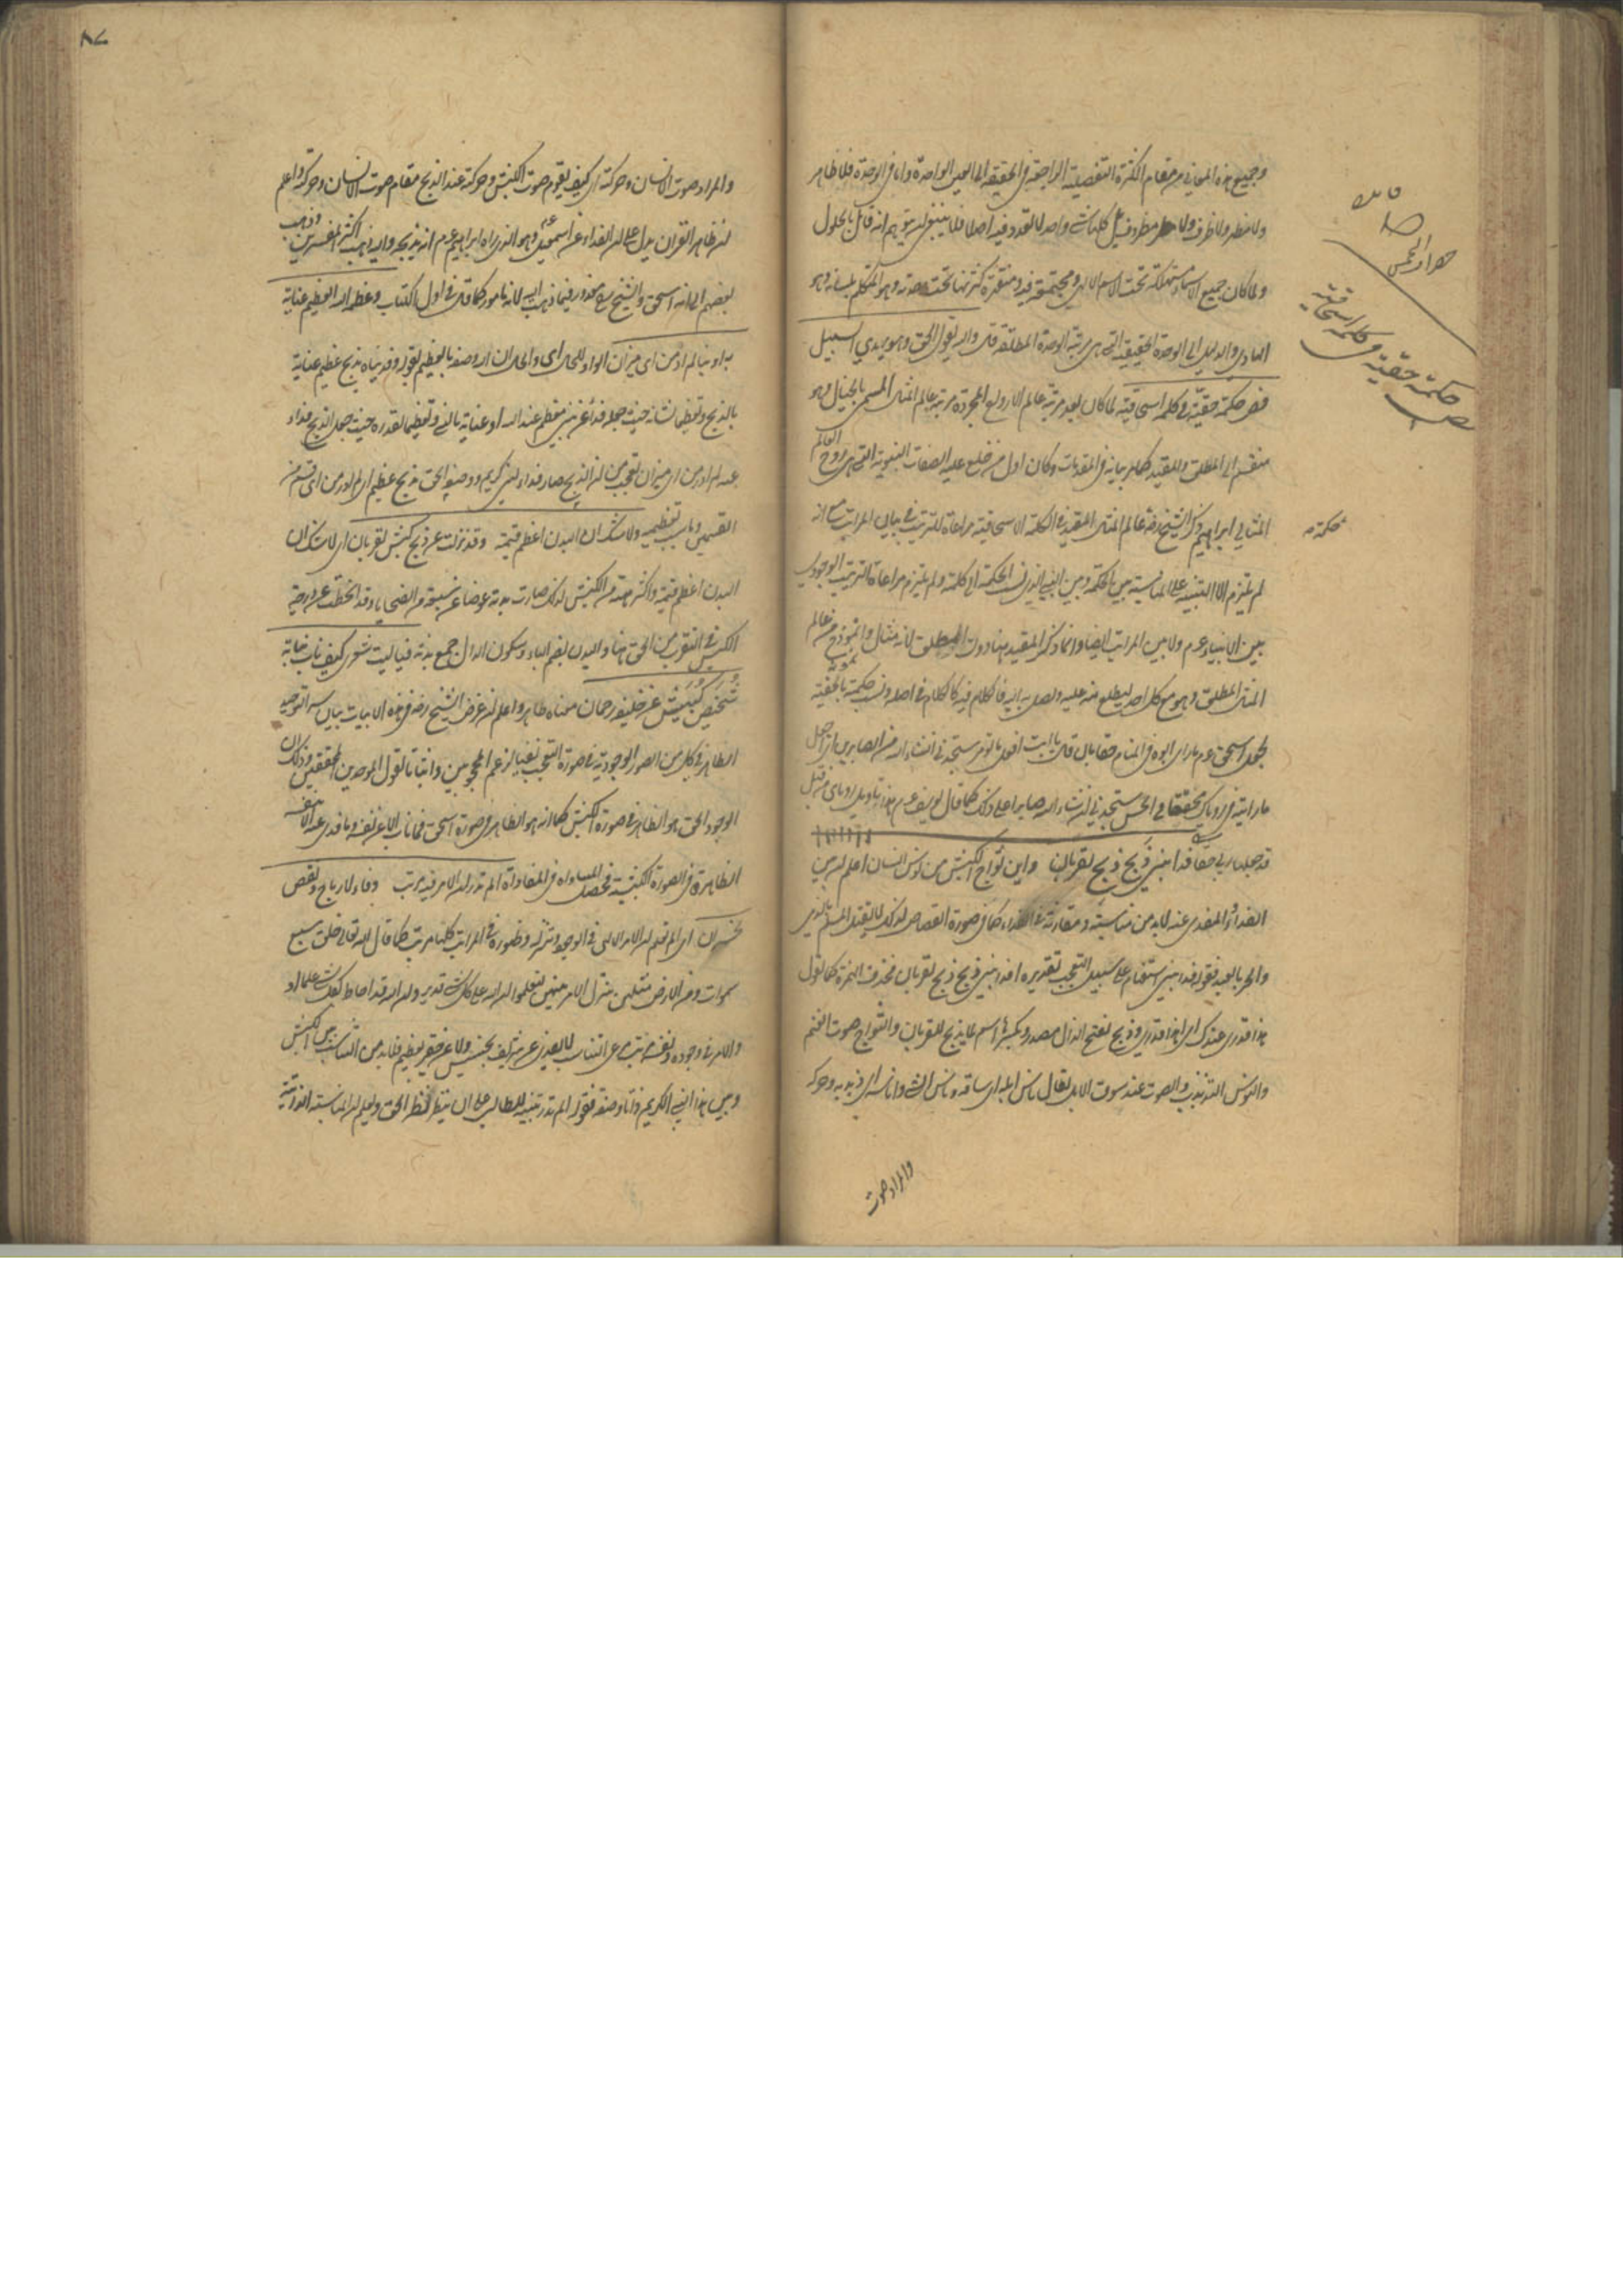 وجميع هذه المعاني من مقام الكثرة التفصيلية الراجعة في الحقيقة الى العين الواحدة واما في الوحدة فلا ظاهر
ولا مظهر ولا ظرف ولا مظروف بل كلها شيء واحد لا تعدد فيه اصلا فلا ينبغي ان يتوهم انه قائل بالحلول
ولما كان جميع الاسماء مستهلكة تحت الاسم الالهي ومجتمعة فيه ومنقهرة كثرتها تحت وحدته وهو المتكلم بلسانه وهو
الهادي والدليل الى الوحدة الحقيقية التي هي مرتبة الوحدة المطلقة قال والله يقول الحق وهو يهدي السبيل
فص حكمة حقية في كلمة اسحاقية لما كان بعد مرتبة عالم الارواح المجردة مرتبة عالم المثال المسمى بالخيال وهو
منقسم الى المطلق والمقيد كما مر بيانه في المقدمات وكان اول من خلع عليه الصفات الثبوتية التي هي روح العالم
المثالي ابراهيم ذكر الشيخ رضه عالم المثال المقيد في الكلمة الاسحاقية مراعاة للترتيب في بيان المراتب مع انه
لم يلتزم الا التنبيه على المناسبة بين الحكمة وبين النبي الذي نسب الحكمة الى كلمته ولم يلتزم مراعاة الترتيب الوجودي
بين الانبياء عم ولا بين المراتب ايضا وانما ذكر المقيد ههنا دون المطلق لانه مثال وانموذج من عالم
المثال المطلق وهو مع كل احد ليطلع منه عليه ويصل به اليه فالكلام فيه كالكلام في اصله ونسب حكمته بالحقية
لجعل اسحق عم ما راى ابوه في المنام حقا بان قال يا ابت افعل ما تؤمر ستجدني ان شاء الله من الصابرين اي اجعل
ما رايته في رؤياك محققا في الحس ستجدني ان شاء الله صابرا على ذلك كما قال يوسف عم هذا تاويل رؤياي من قبل
قد جعلها ربي حقا فداء نبي ذبح ذبح لقربان واين ثؤاج الكبش من نوس انسان اعلم ان بين
الفداء والمفدى عنه لابد من مناسبة ومقارنة في الفداء كما في صورة القصاص لذلك لا يقتل المسلم بالذمي
والحر بالعبد فقوله فداء نبي استفهام على سبيل التعجب تقديره افداء نبي ذبح ذبح لقربان فحذفت الهمزة كما تقول
هذا قدري عندك اي اهذا قدري وذبح بفتح الذال مصدر وبكسرها اسم لما يذبح للقربان والثؤاج صوت الغنم
والنوس التذبذب والصوت عند سوق الابل يقال ناس ابله اي ساقه وناس الشيء واناسه اي ذبذبه وحركه
والمراد صوت
فص حكمة حقية في كلمة اسحاقية
حكمته
والمراد صوت الانسان وحركته اي كيف يقوم صوت الكبش وحركته عند الذبح مقام صوت الانسان وحركته واعلم
ان ظاهر القران يدل على ان الفداء عن اسمعيل وهو الذي راه ابراهيم عم انه يذبحه واليه ذهب اكثر المفسرين وذهب
بعضهم الى انه اسحق والشيخ رضه معذور فيما ذهب اليه لانه مامور كما قال في اول الكتاب وعظمه الله العظيم عناية
به او بنا لم ادر من اي ميزان الواو للحال اي والحال ان الله وصفه بالعظيم بقوله وفديناه بذبح عظيم عناية
بالذبح وتعظيما لشانه حيث جعله فداء عن نبي معظم عند الله او عناية بالنبي وتعظيما لقدره حيث جعل الذبح فداء
عنه لم ادر من اي ميزان تعجب من ان الذبح صار فداء لنبي كريم ووصفه الحق بذبح عظيم اي لم ادر من اي قسم من
القسمين وما سبب تعظيمه ولا شك ان البدن اعظم قيمة وقد نزلت عن ذبح كبش لقربان اي لا شك ان
البدن اعظم قيمة واكثر هيئة من الكبش لذلك صارت بدنة عوضا عن سبعة من الضحايا وقد انحطت عن درجة
الكبش في التقرب من الحق ههنا والبدن بضم الباء وسكون الدال جمع بدنة فيا ليت شعري كيف ناب بذاته
شخيص كبيش عن خليفة رحمان معناه ظاهر واعلم ان غرض الشيخ رضه في هذه الابيات بيان سر التوحيد
الظاهر في كل من الصور الوجودية في صورة التعجب نفيا لزعم المحجوبين واثباتا لقول الموحدين المحققين وذلك ان
الوجود الحق هو الظاهر في صورة الكبش كما انه هو الظاهر في صورة اسحق فما ناب الا عن نفسه وما فدي عنه الا بنفسه
الظاهرة في الصورة الكبشية فحصل المساواة في المفاداة الم تدر ان الامر فيه مرتب وفاء لارباح ونقص
لخسران اي الم تعلم ان الامر الالهي في الوجود وتنزله وظهوره في المراتب كلها مرتب كما قال الله تعالى خلق سبع
سموات ومن الارض مثلهن يتنزل الامر بينهن لتعلموا ان الله على كل شيء قدير وان الله قد احاط بكل شيء علما او
والامر في وجوده ونفسه مرتب مراعى التناسب لا يفدي عن شريف بخسيس ولا عن حقير بعظيم فلابد من التناسب بين الكبش
وبين هذا النبي الكريم ذاتا وصفة فقوله الم تدر تنبيه للطالب على ان ينظر نظر الحق ويعلم ان المناسبة الذاتية